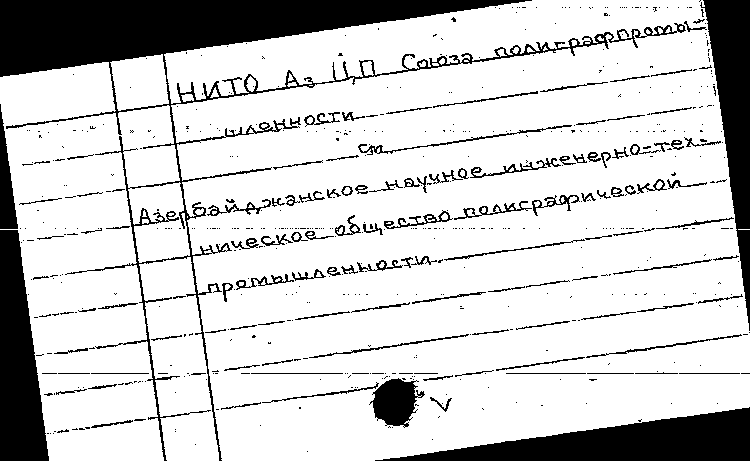 НИТО Аз ЦП Союза полиграфпромы-
шленности
см.
Азербайджанское научное инженерно-тех-
ническое общество полиграфической
промышленности.
V